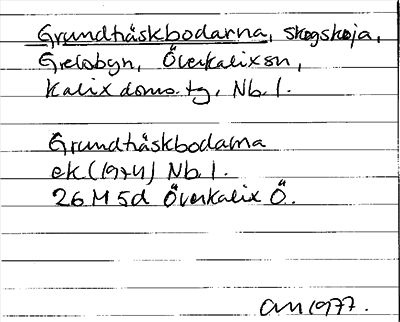 Grundträskbodarna, skogskoja,
Grelsbyn, Överkalix sn,
Kalix doms. tg, Nb. l.
Grundträskbodarna
ek. (1974) Nb. l.
26 M 5d Överkalix Ö.
1977.